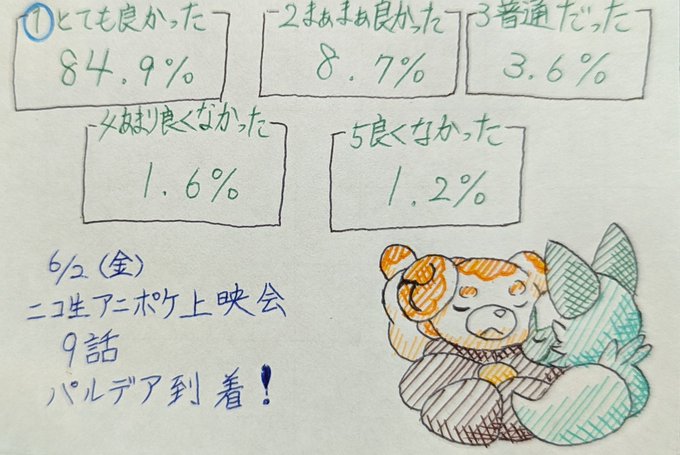 ①とても良かった
84.9%
2まぁまぁ良かった
8.7%
3普通だった
3.6%
4あまり良くなかった
1.6%
5良くなかった
1.2%
6/2(金)
ニコ生アニポケ上映会
9話
パルデア到着!